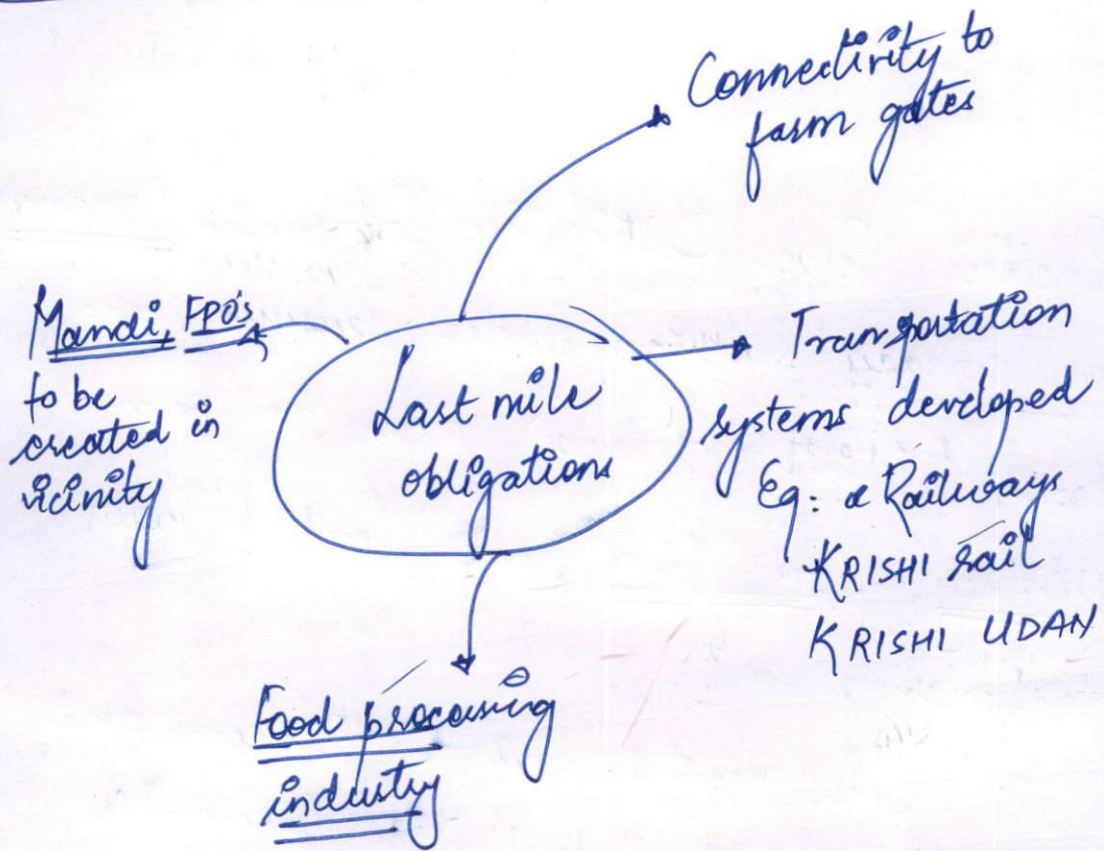 Connectivity to
farm gates
Mandi, FPO's
to be
created in
vicinity
Last mile
obligations
Transportation
systems developed
Eg: Railways
KRISHI rail
KRISHI UDAN
Food processing
industry